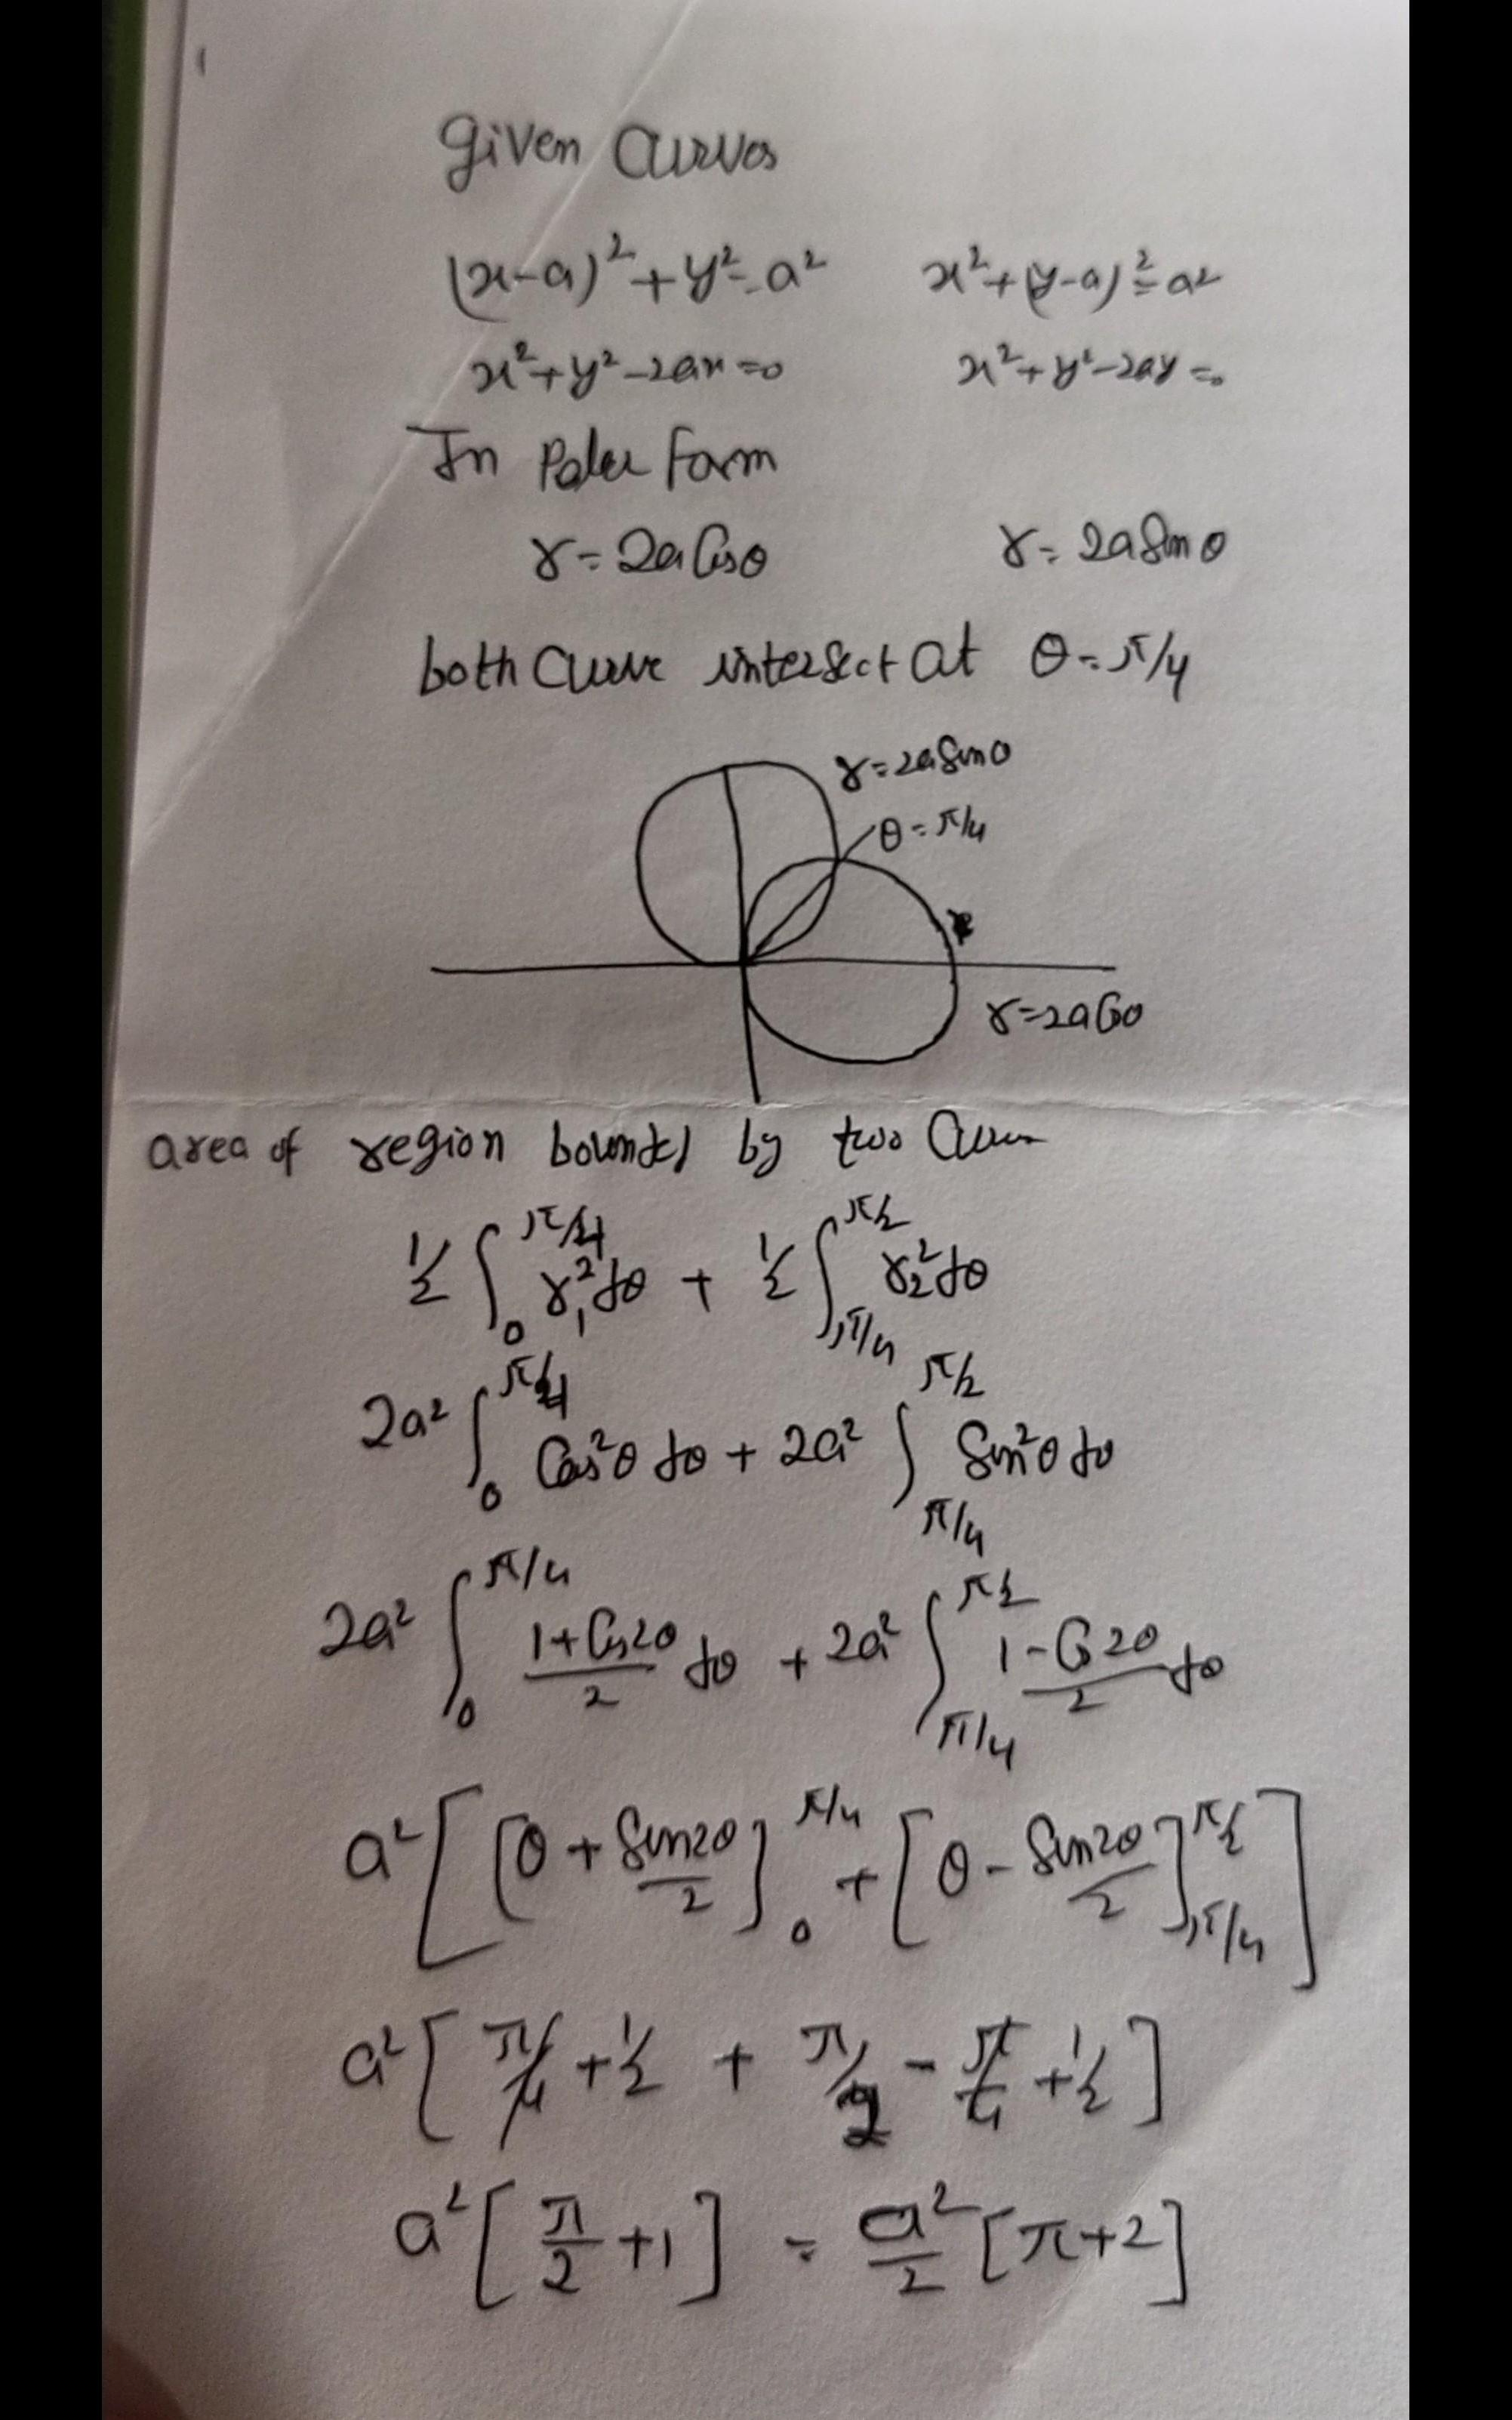 given curves
(x-a)² + y² = a²    x² + (y-a)² = a²
x² + y² - 2ax = 0    x² + y² - 2ay = 0
In Polar Form
r = 2a Cosθ    r = 2a Sinθ
both Curve intersect at θ = π/4
r = 2a Sinθ
θ = π/4
r = 2a Cosθ
area of region bounded by two Curve
½ ∫₀^(π/4) r₁² dθ + ½ ∫_(π/4)^(π/2) r₂² dθ
2a² ∫₀^(π/4) Cos²θ dθ + 2a² ∫_(π/4)^(π/2) Sin²θ dθ
2a² ∫₀^(π/4) (1+Cos2θ)/2 dθ + 2a² ∫_(π/4)^(π/2) (1-Cos2θ)/2 dθ
a² [ [θ + Sin2θ/2]₀^(π/4) + [θ - Sin2θ/2]_(π/4)^(π/2) ]
a² [ π/4 + ½ + π/2 - π/4 + ½ ]
a² [ π/2 + 1 ] = a²/2 [π+2]